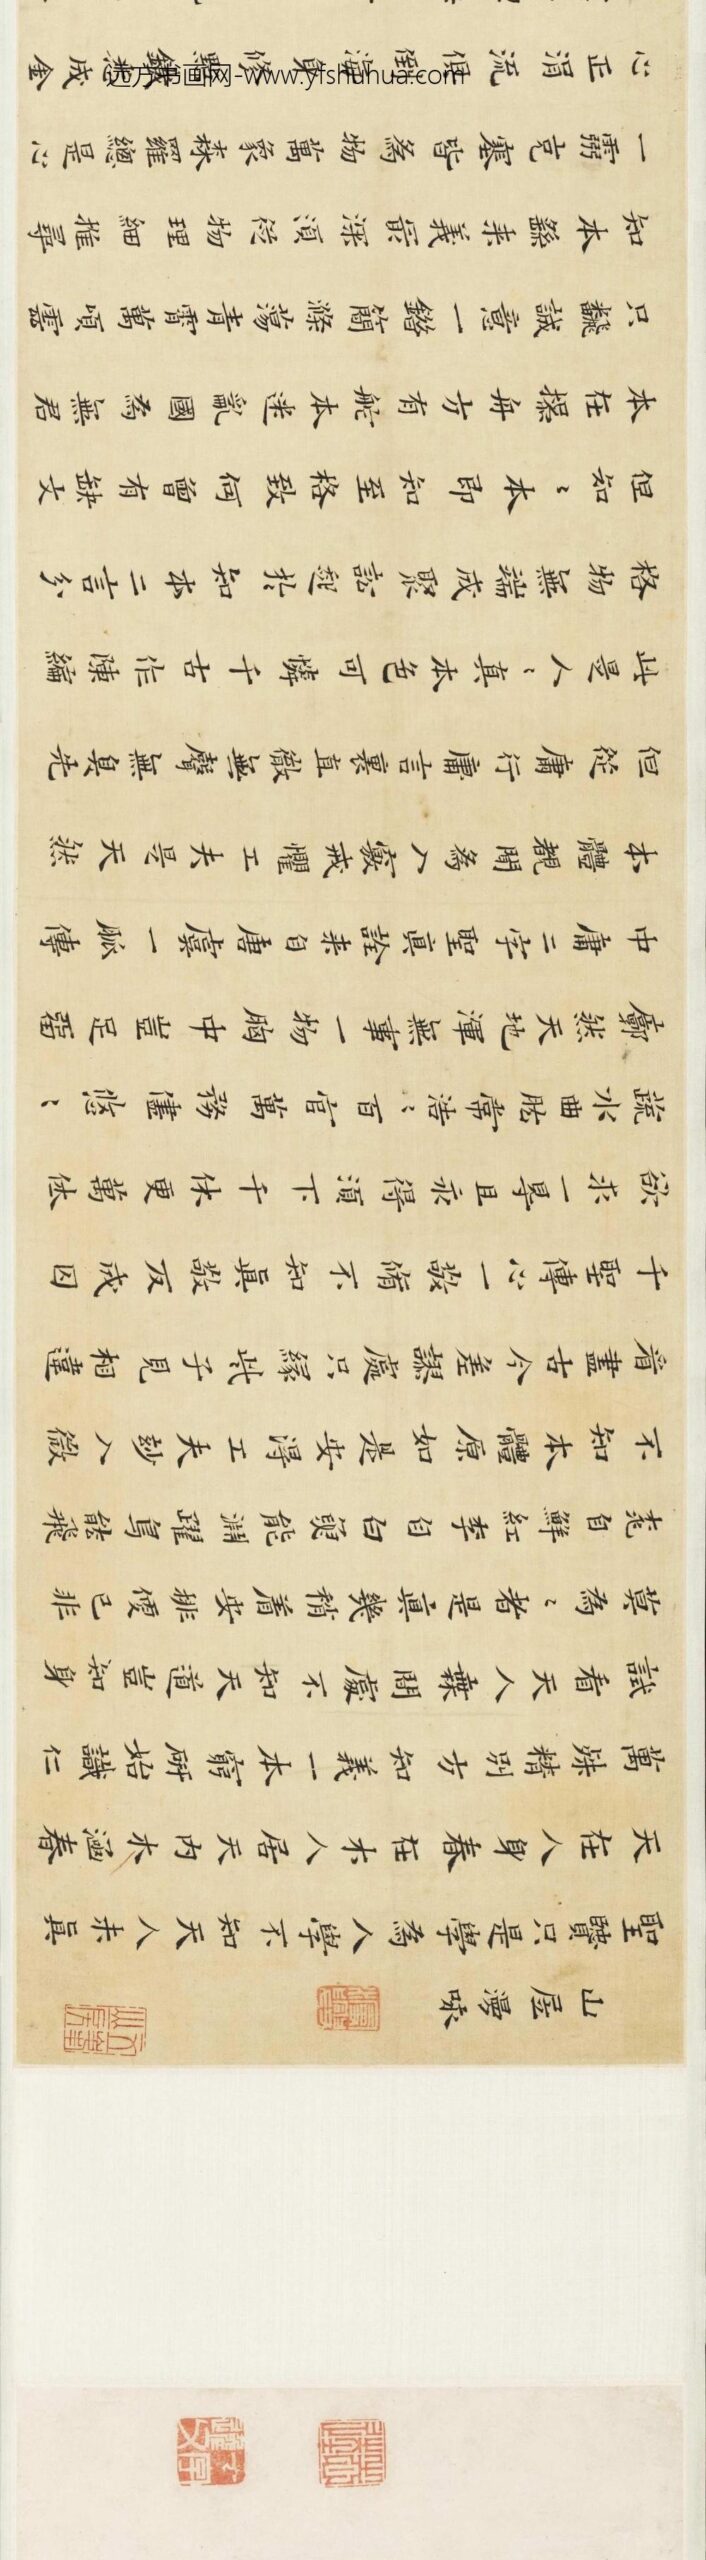 山居漫咏
聖賢只是學為人學不知天人未真
天在人身春在木人居天內木涵春
萬殊精別方知義一本窮研始識仁
試看天人無間處不知天道豈知身
莫為〻者是真幾稍着安排便已非
桃自鮮紅李自白魚能淵躍鳥能飛
不知本體原如是安得工夫妙入微
看盡古今差謬處只緣此子見相違
千聖傳心一敬脩不知真敬反成囚
欲求一是且永得須下千休更萬休
蔬水曲肱常浩〻百官萬務儘悠〻
廓然天地渾無事一物胸中豈足留
中庸二字聖真詮來自唐虞一脈傳
本體覩聞為入竅戒懼工夫是天然
但從庸行庸言裏直徹無聲無臭先
此是人〻真本色可憐千古作陳編
格物無端成聚訟疑於知本二言分
但知〻本即知至格致何曾有缺文
本在操舟方有舵本迷亂國為無君
只翻誠意一錯簡滌蕩青霄萬頃雲
知本繇來義最深須從物理細推尋
一靈充塞皆為物萬象森羅總是心
心正涓流俱到海身修點鐵成金
远方书画网-www.yfshuhua.com